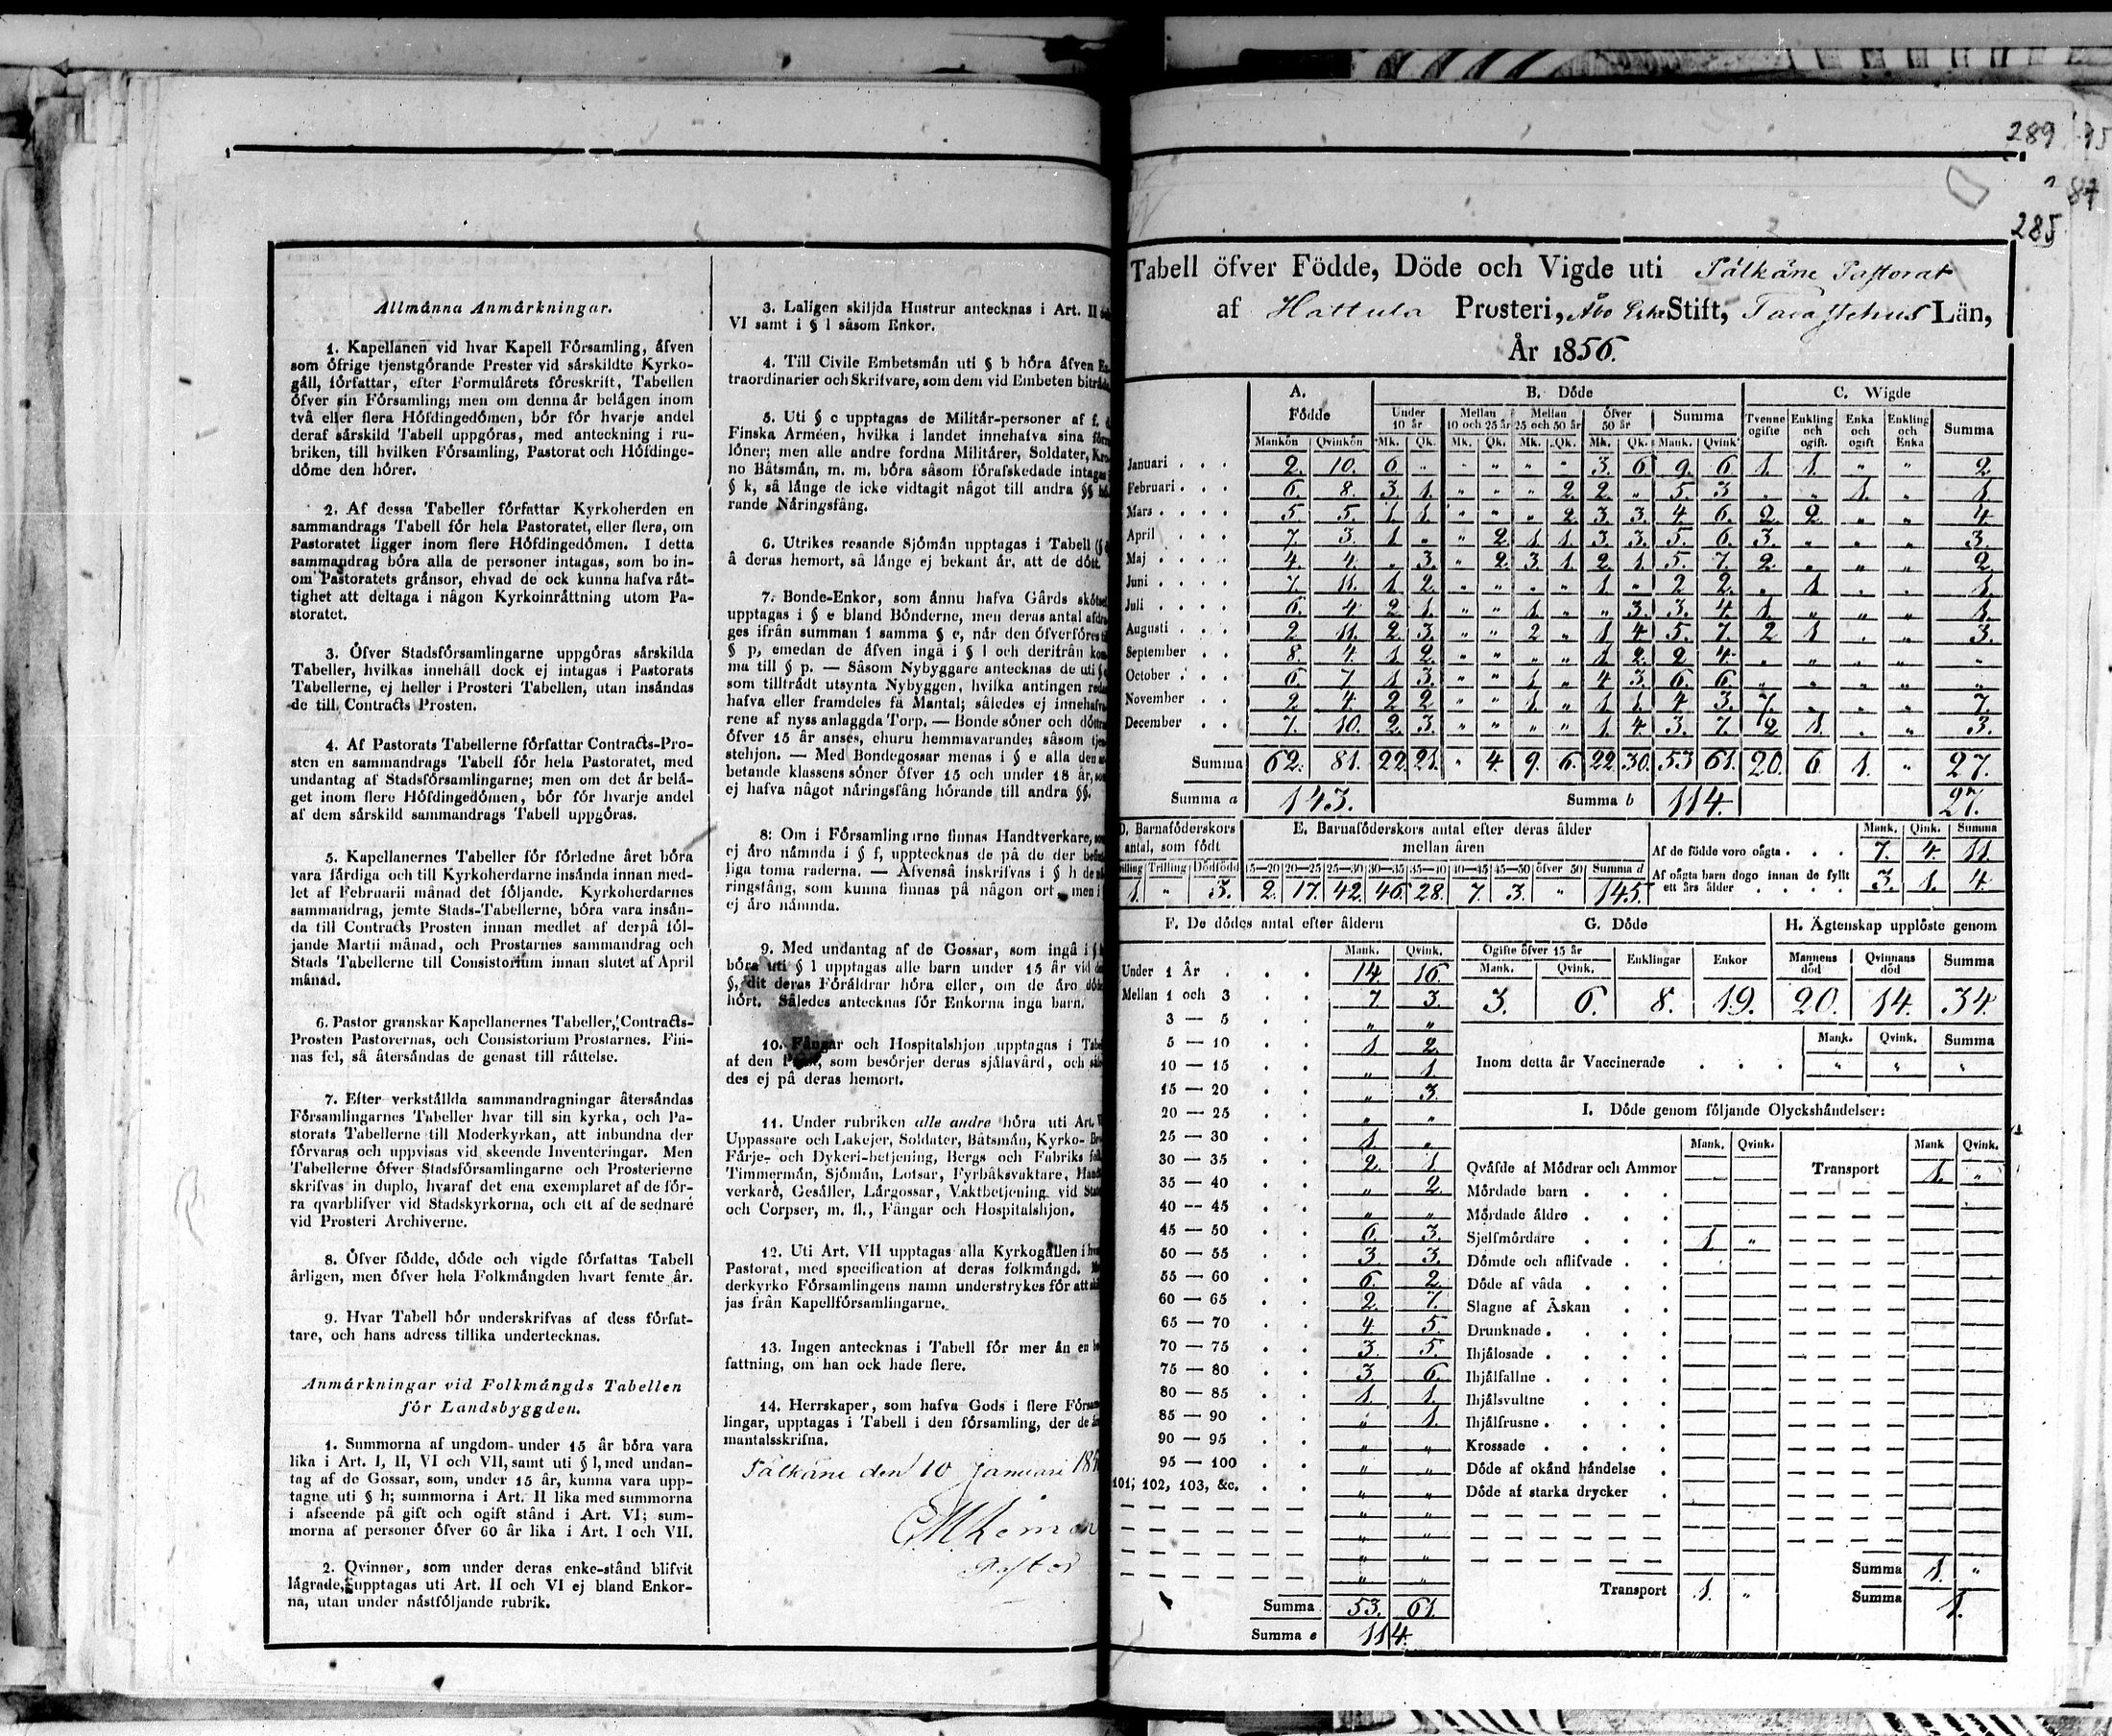 289
285
Allmänna Anmärkningar.
1. Kapellanen vid hvar Kapell Församling, äfven
som öfrige tjenstgörande Prester vid särskildte Kyrko-
gäll, författar, efter Formulärets föreskrift, Tabellen
öfver sin Församling; men om denna är belägen inom
två eller flera Höfdingedömen, bör för hvarje andel
deraf särskild Tabell uppgöras, med anteckning i ru-
briken, till hvilken Församling, Pastorat och Höfdinge-
döme den hörer.
2. Af dessa Tabeller författar Kyrkoherden en
sammandrags Tabell för hela Pastoratet, eller flere, om
Pastoratet ligger inom flere Höfdingedömen. I detta
sammandrag böra alla de personer intagas, som bo in-
om Pastoratets gränsor, ehvad de ock kunna hafva rät-
tighet att deltaga i någon Kyrkoinrättning utom Pa-
storatet.
3. Öfver Stadsförsamlingarne uppgöras särskilda
Tabeller, hvilkas innehåll dock ej intagas i Pastorats
Tabellerne, ej heller i Prosteri Tabellen, utan insändas
de till Contracts Prosten.
4. Af Pastorats Tabellerne författar Contracts-Pro-
sten en sammandrags Tabell för hela Pastoratet, med
undantag af Stadsförsamlingarne; men om det är belä-
get inom flere Höfdingedömen, bör för hvarje andel
af dem särskild sammandrags Tabell uppgöras.
5. Kapellanernes Tabeller för förledne året böra
vara färdiga och till Kyrkoherdarne insända innan med-
let af Februarii månad det följande. Kyrkoherdarnes
sammandrag, jemte Stads-Tabellerne, böra vara insän-
da till Contracts Prosten innan medlet af derpå föl-
jande Martii månad, och Prostarnes sammandrag och
Stads Tabellerne till Consistorium innan slutet af April
månad.
6. Pastor granskar Kapellanernes Tabeller, Contracts-
Prosten Pastorernas, och Consistorium Prostarnes. Fin-
nas fel, så återsändas de genast till rättelse.
7. Efter verkställda sammandragningar återsändas
Församlingarnes Tabeller hvar till sin kyrka, och Pa-
storats Tabellerne till Moderkyrkan, att inbundna der
förvaras och uppvisas vid skeende Inventeringar. Men
Tabellerne öfver Stadsförsamlingarne och Prosterierne
skrifvas in duplo, hvaraf det ena exemplaret af de för-
ra qvarblifver vid Stadskyrkorna, och ett af de sednare
vid Prosteri Archiverne.
8. Öfver födde, döde och vigde författas Tabell
årligen, men öfver hela Folkmängden hvart femte år.
9. Hvar Tabell bör underskrifvas af dess förfat-
tare, och hans adress tillika undertecknas.
Anmärkningar vid Folkmängds Tabellen
för Landsbyggden.
1. Summorna af ungdom under 15 år böra vara
lika i Art. I, II, VI och VII, samt uti § l, med undan-
tag af de Gossar, som, under 15 år, kunna vara upp-
tagne uti § h; summorna i Art. II lika med summorna
i afseende på gift och ogift stånd i Art. VI; sum-
morna af personer öfver 60 år lika i Art. I och VII.
2. Qvinnor, som under deras enke-stånd blifvit
lägrade, upptagas uti Art. II och VI ej bland Enkor-
na, utan under nästföljande rubrik.
3. Laligen skiljda Hustrur antecknas i Art. II
VI samt i § l såsom Enkor.
4. Till Civile Embetsmän uti § b höra äfven
traordinarier och Skrifvare, som dem vid Embeten
5. Uti § c upptagas de Militär-personer af f. d.
Finska Arméen, hvilka i landet innehafva sina
löner; men alle andre fordna Militärer, Soldater,
no Båtsmän, m. m. böra såsom förafskedade intagas
§ k, så länge de icke vidtagit något till andra §§
rande Näringsfång.
6. Utrikes resande Sjömän upptagas i Tabell
å deras hemort, så länge ej bekant är, att de dött.
7. Bonde-Enkor, som ännu hafva Gårds
upptagas i § e bland Bönderne, men deras antal
ges ifrån summan i samma § e, når den öfverföres
§ p, emedan de äfven ingå i § l och derifrån
ma till § p. — Såsom Nybyggare antecknas de uti
som tillträdt utsynta Nybyggen, hvilka antingen
hafva eller framdeles få Mantal; således ej
rene af nyss anlaggda Torp. — Bonde söner och
öfver 15 år anses, churu hemmavarande; såsom
stehjon. — Med Bondegossar menas i § e alla den
betande klassens söner öfver 15 och under 18 år,
ej hafva något näringsfång hörande till andra §§.
8: Om i Församlingarne finnas Handtverkare,
ej äro nämnda i § f, upptecknas de på de der
liga toma raderna. — Äfvenså inskrifvas i § h de
ringsfång, som kunna finnas på någon ort men i
ej äro nämnda.
9. Med undantag af de Gossar, som ingå i §
böra uti § l upptagas alle barn under 15 år vid
§, dit deras Föräldrar höra eller, om de äro
hört. Således antecknas för Enkorna inga barn.
10. Fångar och Hospitalshjon upptagas i
af den som besörjer deras själavård, och
des ej på deras hemort.
11. Under rubriken alle andre höra uti Art.
Uppassare och Lakejer, Soldater, Båtsmän, Kyrko-
Färje- och Dykeri-betjening, Bergs och Fabriks
Timmermän, Sjömän, Lotsar, Fyrbåksvaktare,
verkare, Gesäller, Lärgossar, Vaktbetjening vid
och Corpser, m. fl., Fångar och Hospitalshjon.
12. Uti Art. VII upptagas alla Kyrkogällen i
Pastorat, med specification af deras folkmängd.
derkyrko Församlingens namn understrykes för att
jas från Kapellförsamlingarne.
13. Ingen antecknas i Tabell för mer än en
fattning, om han ock hade flere.
14. Herrskaper, som hafva Gods i flere
lingar, upptagas i Tabell i den församling, der de
mantalsskrifna.
Pälkäne den 10 Januari
Pastor
Tabell öfver Födde, Döde och Vigde uti Pälkäne Pastorat
af Hattula Prosteri, Åbo Erke Stift, Tavastehus Län,
År 1856.
A. Födde B. Döde C. Wigde
Under 10 år Mellan 10 och 25 år Mellan 25 och 50 år Öfver 50 år Summa Tvenne ogifte Enkling och ogift. Enka och ogift Enkling och Enka Summa
Mankön Qvinkön Mk. Qk. Mk. Qk. Mk. Qk. Mk. Qk. Mank. Qvink.
Januari . . . 2. 10. 6 „ „ „ „ „ 3. 6. 9. 6 1. 1. „ „ 2
Februari . . . 6. 8. 3. 1. „ „ „ 2. 2. „ 5. 3 „ „ 1. „ 1.
Mars . . . . 5. 5. 1. 1. „ „ „ 2. 3. 3. 4 6. 2. 2. „ „ 4
April . . . 7. 3. 1. „ „ 2. 1. 1. 3. 3. 5. 6. 3. „ „ „ 3.
Maj . . . . 4. 4. „ 3. „ 2. 3. 1. 2. 1. 5. 7. 2. „ „ „ 2.
Juni . . . . 7. 11. 1. 2. „ „ „ „ 1. „ 2 2. „ 1. „ „ 1.
Juli . . . . 6. 4 2. 1. „ „ 1. „ „ 3. 3. 4 1. „ „ „ 1.
Augusti . . . 2 11. 2. 3. „ „ 2. „ 1. 4 5. 7. 2 1. „ „ 3.
September . . 8. 4. 1. 2. „ „ „ „ 1. 2. 2. 4. „ „ „ „ „
October . . . 6. 7. 1. 3. „ „ 1. „ 4. 3. 6. 6. „ „ „ „ „
November . . 2 4 2 2 „ „ 1. „ 1. 1. 4 3. 7. „ „ „ 7.
December . . 7. 10. 2. 3. „ „ „ „ 1. 4. 3. 7. 2 1. „ „ 3.
Summa 62. 81. 22. 21. „ 4. 9. 6. 22. 30. 53 61. 20. 6. 1. „ 27.
Summa a 143. Summa b 114. 27.
D. Barnaföderskors antal, som födt
Tvilling Trilling Dödfödd
1. „ 3.
E. Barnaföderskors antal efter deras ålder
mellan åren
15—20 20—25 25—30 30—35 35—40 40—45 45—50 öfver 50 Summa d
2. 17. 42. 46. 28. 7. 3. „ 145.
Mank. Qink. Summa
Af de födde voro oägta . . . 7. 4. 11.
Af oägta barn dogo innan de fyllt
ett års ålder . . . . 3. 1. 4.
F. De dödes antal efter åldern
Mank. Qvink.
Under 1 År . . . 14. 16.
Mellan 1 och 3 . . 7. 3.
3 — 5 . . „ „
5 — 10 . . 1 2.
10 — 15 . . „ 1.
15 — 20 . . „ 3.
20 — 25 . . „ „
25 — 30 . . 1. „
30 — 35 . . 2. 1
35 — 40 . . „ 2
40 — 45 . . „ „
45 — 50 . . 6. 3.
50 — 55 . . 3 3.
55 — 60 . . 6. 2.
60 — 65 . . 2. 7.
65 — 70 . . 4. 5.
70 — 75 . . 3. 5.
75 — 80 . . 3 6.
80 — 85 . . 1. 1.
85 — 90 . . „ 1.
90 — 95 . . „ „
95 — 100 . . „ „
101, 102, 103, &c. . . „ „
Summa 53. 61.
Summa e 114.
G. Döde
Ogifte öfver 15 år Enklingar Enkor
Mank. Qvink.
3. 6. 8. 19.
H. Ägtenskap upplöste genom
Mannens död Qvinnans död Summa
20. 14. 34.
Mank. Qvink. Summa
Inom detta år Vaccinerade . . . „ „ „
I. Döde genom följande Olyckshändelser:
Mank. Qvink. Mank Qvink.
Qväfde af Mödrar och Ammor Transport 1. „
Mördade barn . . .
Mördade äldre . . .
Sjelfmördare . . . 1 „
Dömde och aflifvade . .
Döde af våda . . .
Slagne af Åskan . .
Drunknade . . . .
Ihjälosade . . . .
Ihjälfallne . . . .
Ihjälsvultne . . .
Ihjälfrusne . . . .
Krossade . . . .
Döde af okänd händelse .
Döde af starka drycker .
Summa 1. „
Transport 1. „ Summa 1.